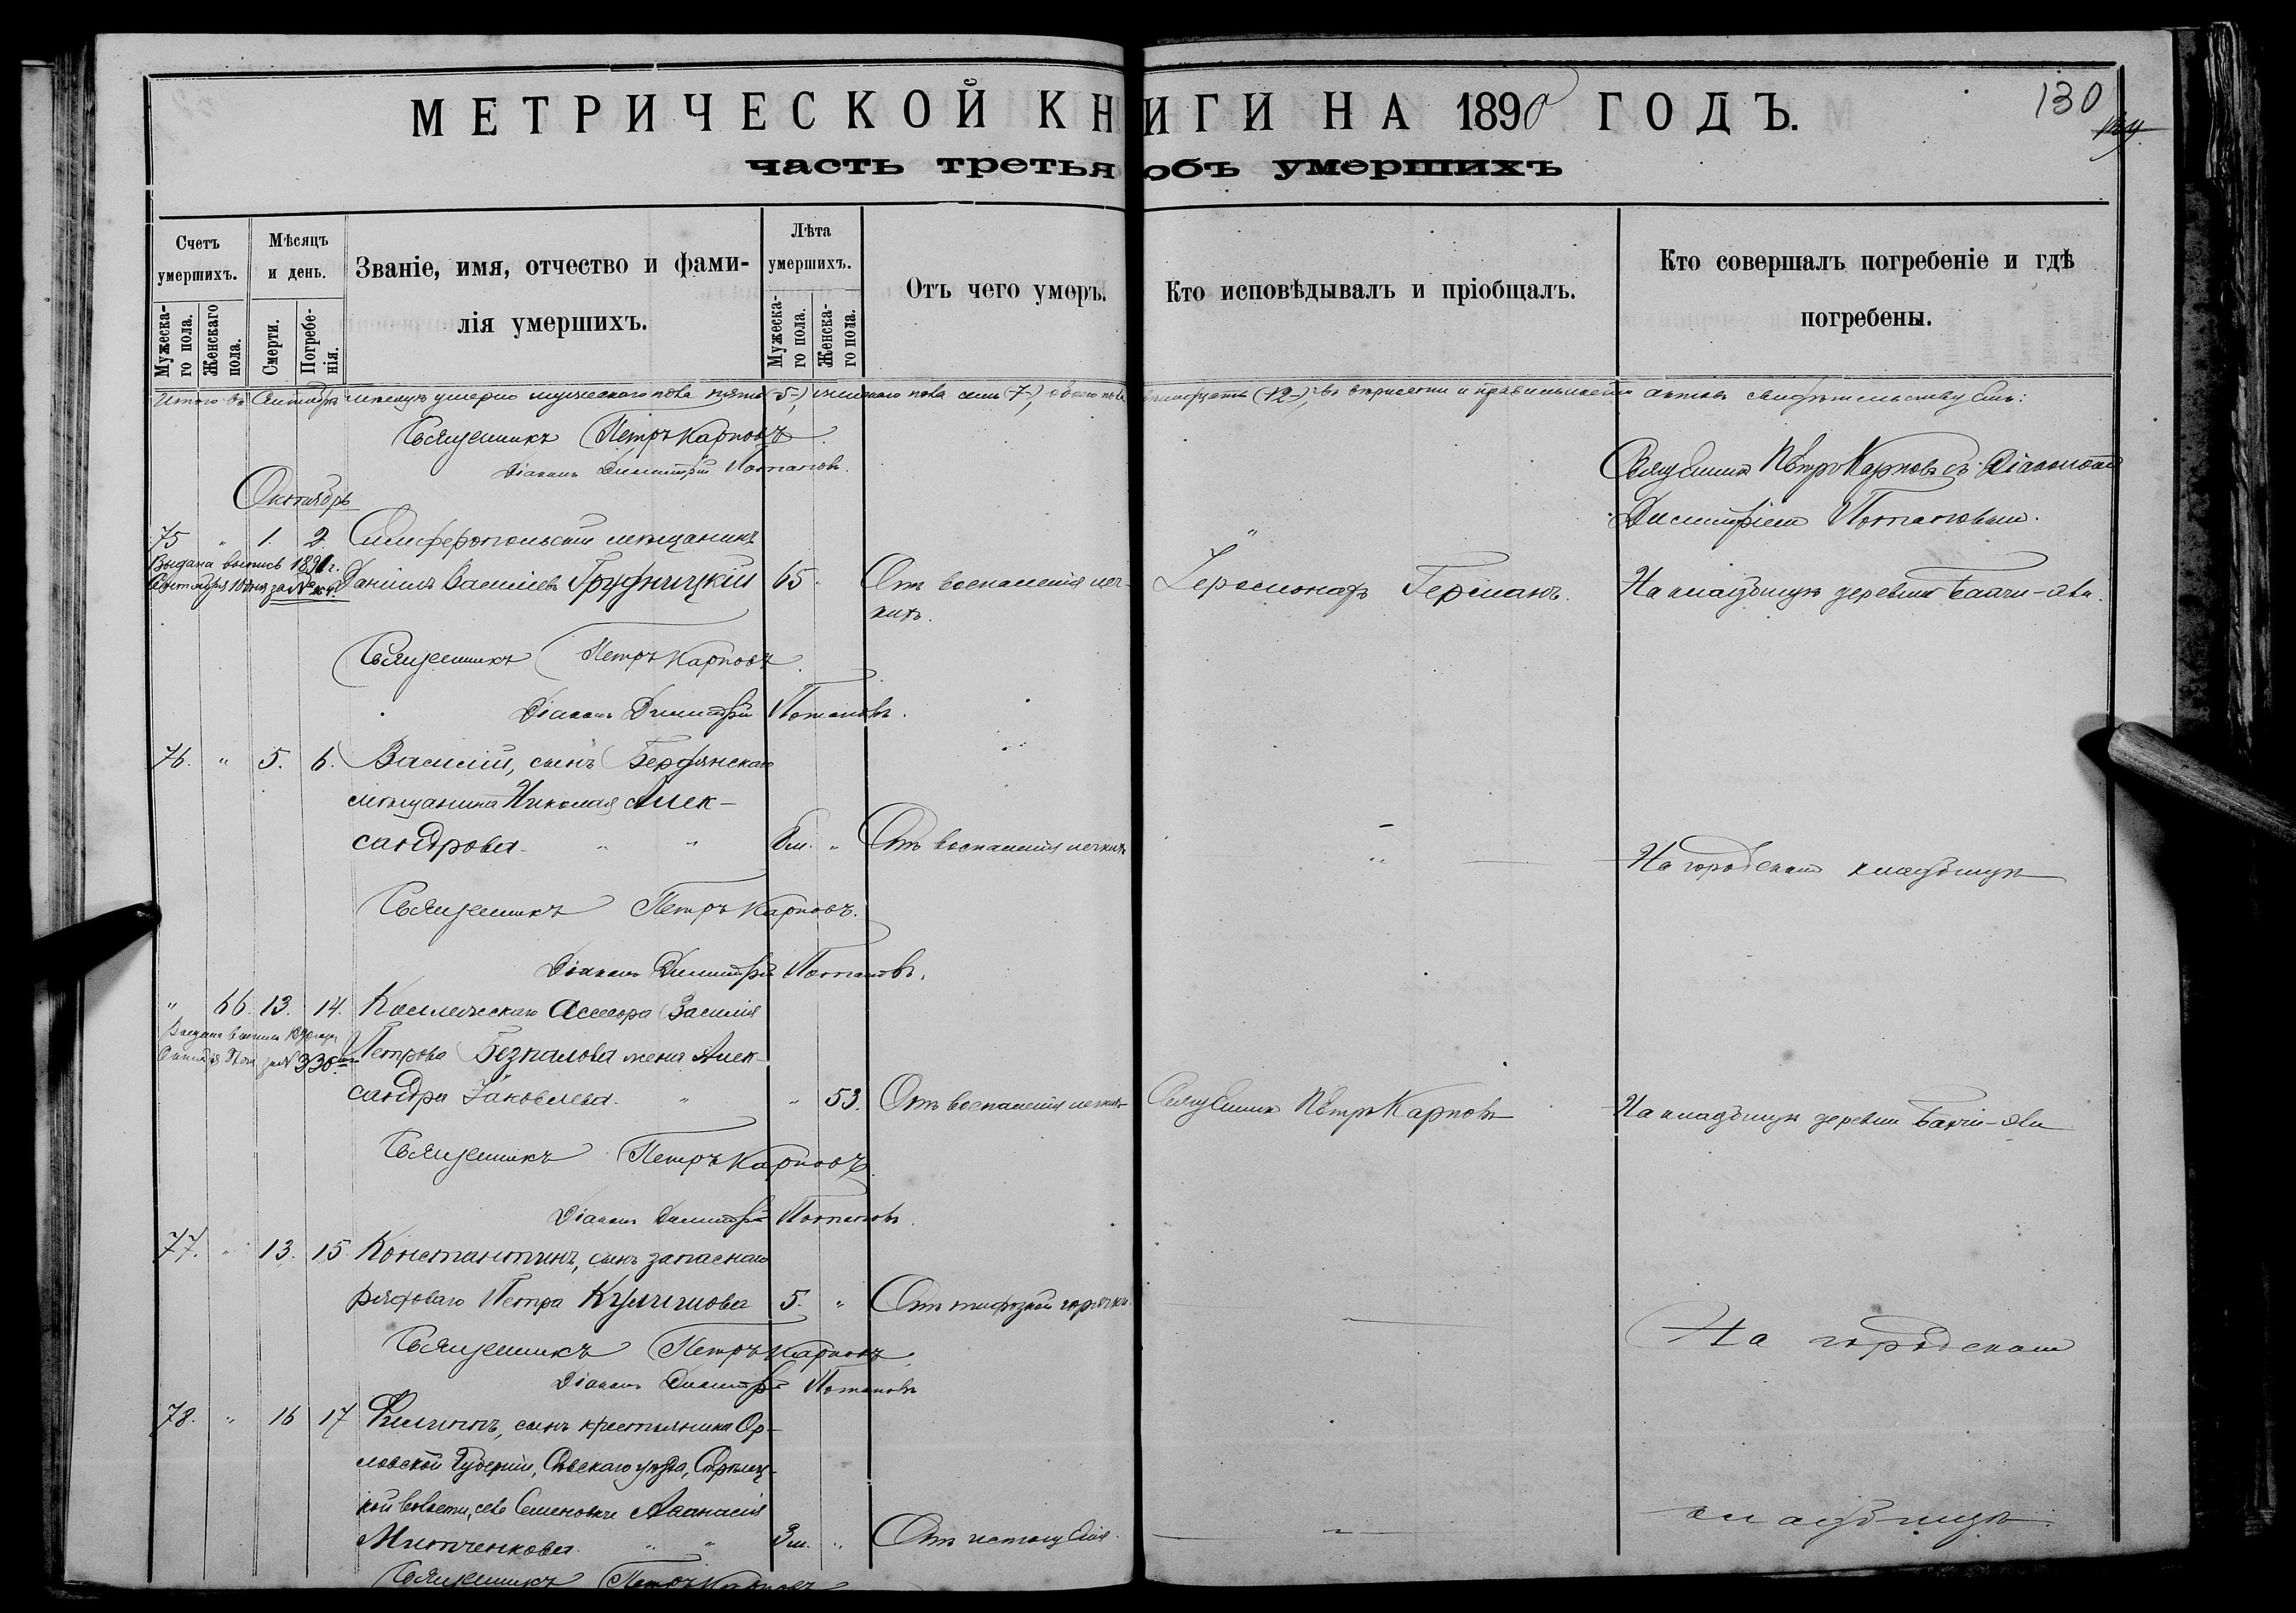 МЕТРИЧЕСКОЙ КНИГИ НА 1890 ГОДЪ.
130
часть третья объ умершихъ
Счетъ умершихъ.
Мужеска-го пола.
Женскаго пола.
Мѣсяцъ и день.
Смерти.
Погребе-нія.
Званіе, имя, отчество и фами-
лія умершихъ.
Лѣта умершихъ.
Мужеска-го пола.
Женска-го пола.
Отъ чего умеръ.
Кто исповѣдывалъ и пріобщалъ.
Кто совершалъ погребеніе и гдѣ
погребены.
Итого въ Сентябрѣ мѣсяцѣ умерло мужескаго пола пять (5), женскаго пола семь (7), обоего пола двенадцать (12),
Священникъ Петръ Карповъ
Діаконъ Димитрій Потаповъ.
Священникъ Петръ Карповъ съ Діакономъ
Димитріемъ Потаповымъ.
Октябрь
75 " 1. 2. Симферопольскій мѣщанинъ
Выдана выпись 1891 г.
Даніилъ Василіевъ Грудницкій 65. Отъ воспаленія лег-
кихъ.
Іеромонахъ Германъ.
На кладбищѣ деревни Бахчи-Эли.
Священникъ Петръ Карповъ
Діаконъ Димитрій Потаповъ.
76. " 5. 6. Василій, сынъ Бердянскаго
мѣщанина Николая Алек-
сандрова " " 8 м. " Отъ воспаленія легкихъ
" На городскомъ кладбищѣ
Священникъ Петръ Карповъ.
Діаконъ Димитрій Потаповъ.
" 66. 13. 14. Коллежскаго Ассесора Василія
Выдана выпись 1890 года
Петрова Безпалова жена Алек-
сандра Іаковлева " " 53. Отъ воспаленія легкихъ
Священникъ Петръ Карповъ
На кладбищѣ деревни Бахчи-Эли
Священникъ Петръ Карповъ
Діаконъ Димитрій Потаповъ.
77. " 13. 15. Константинъ, сынъ запаснаго
рядоваго Петра 5. " Отъ тифозной горячки.
На городскомъ
Священникъ Петръ Карповъ
Діаконъ Димитрій Потаповъ
78. " 16 17 Филиппъ, сынъ крестьянина Ор-
ловской Губерніи, Сѣвскаго уѣзда, Стрѣлец-
кой волости, села Семеновки Аѳанасія
" " 3 м. " Отъ истощенія.
" кладбищѣ.
Священникъ Петръ Карповъ